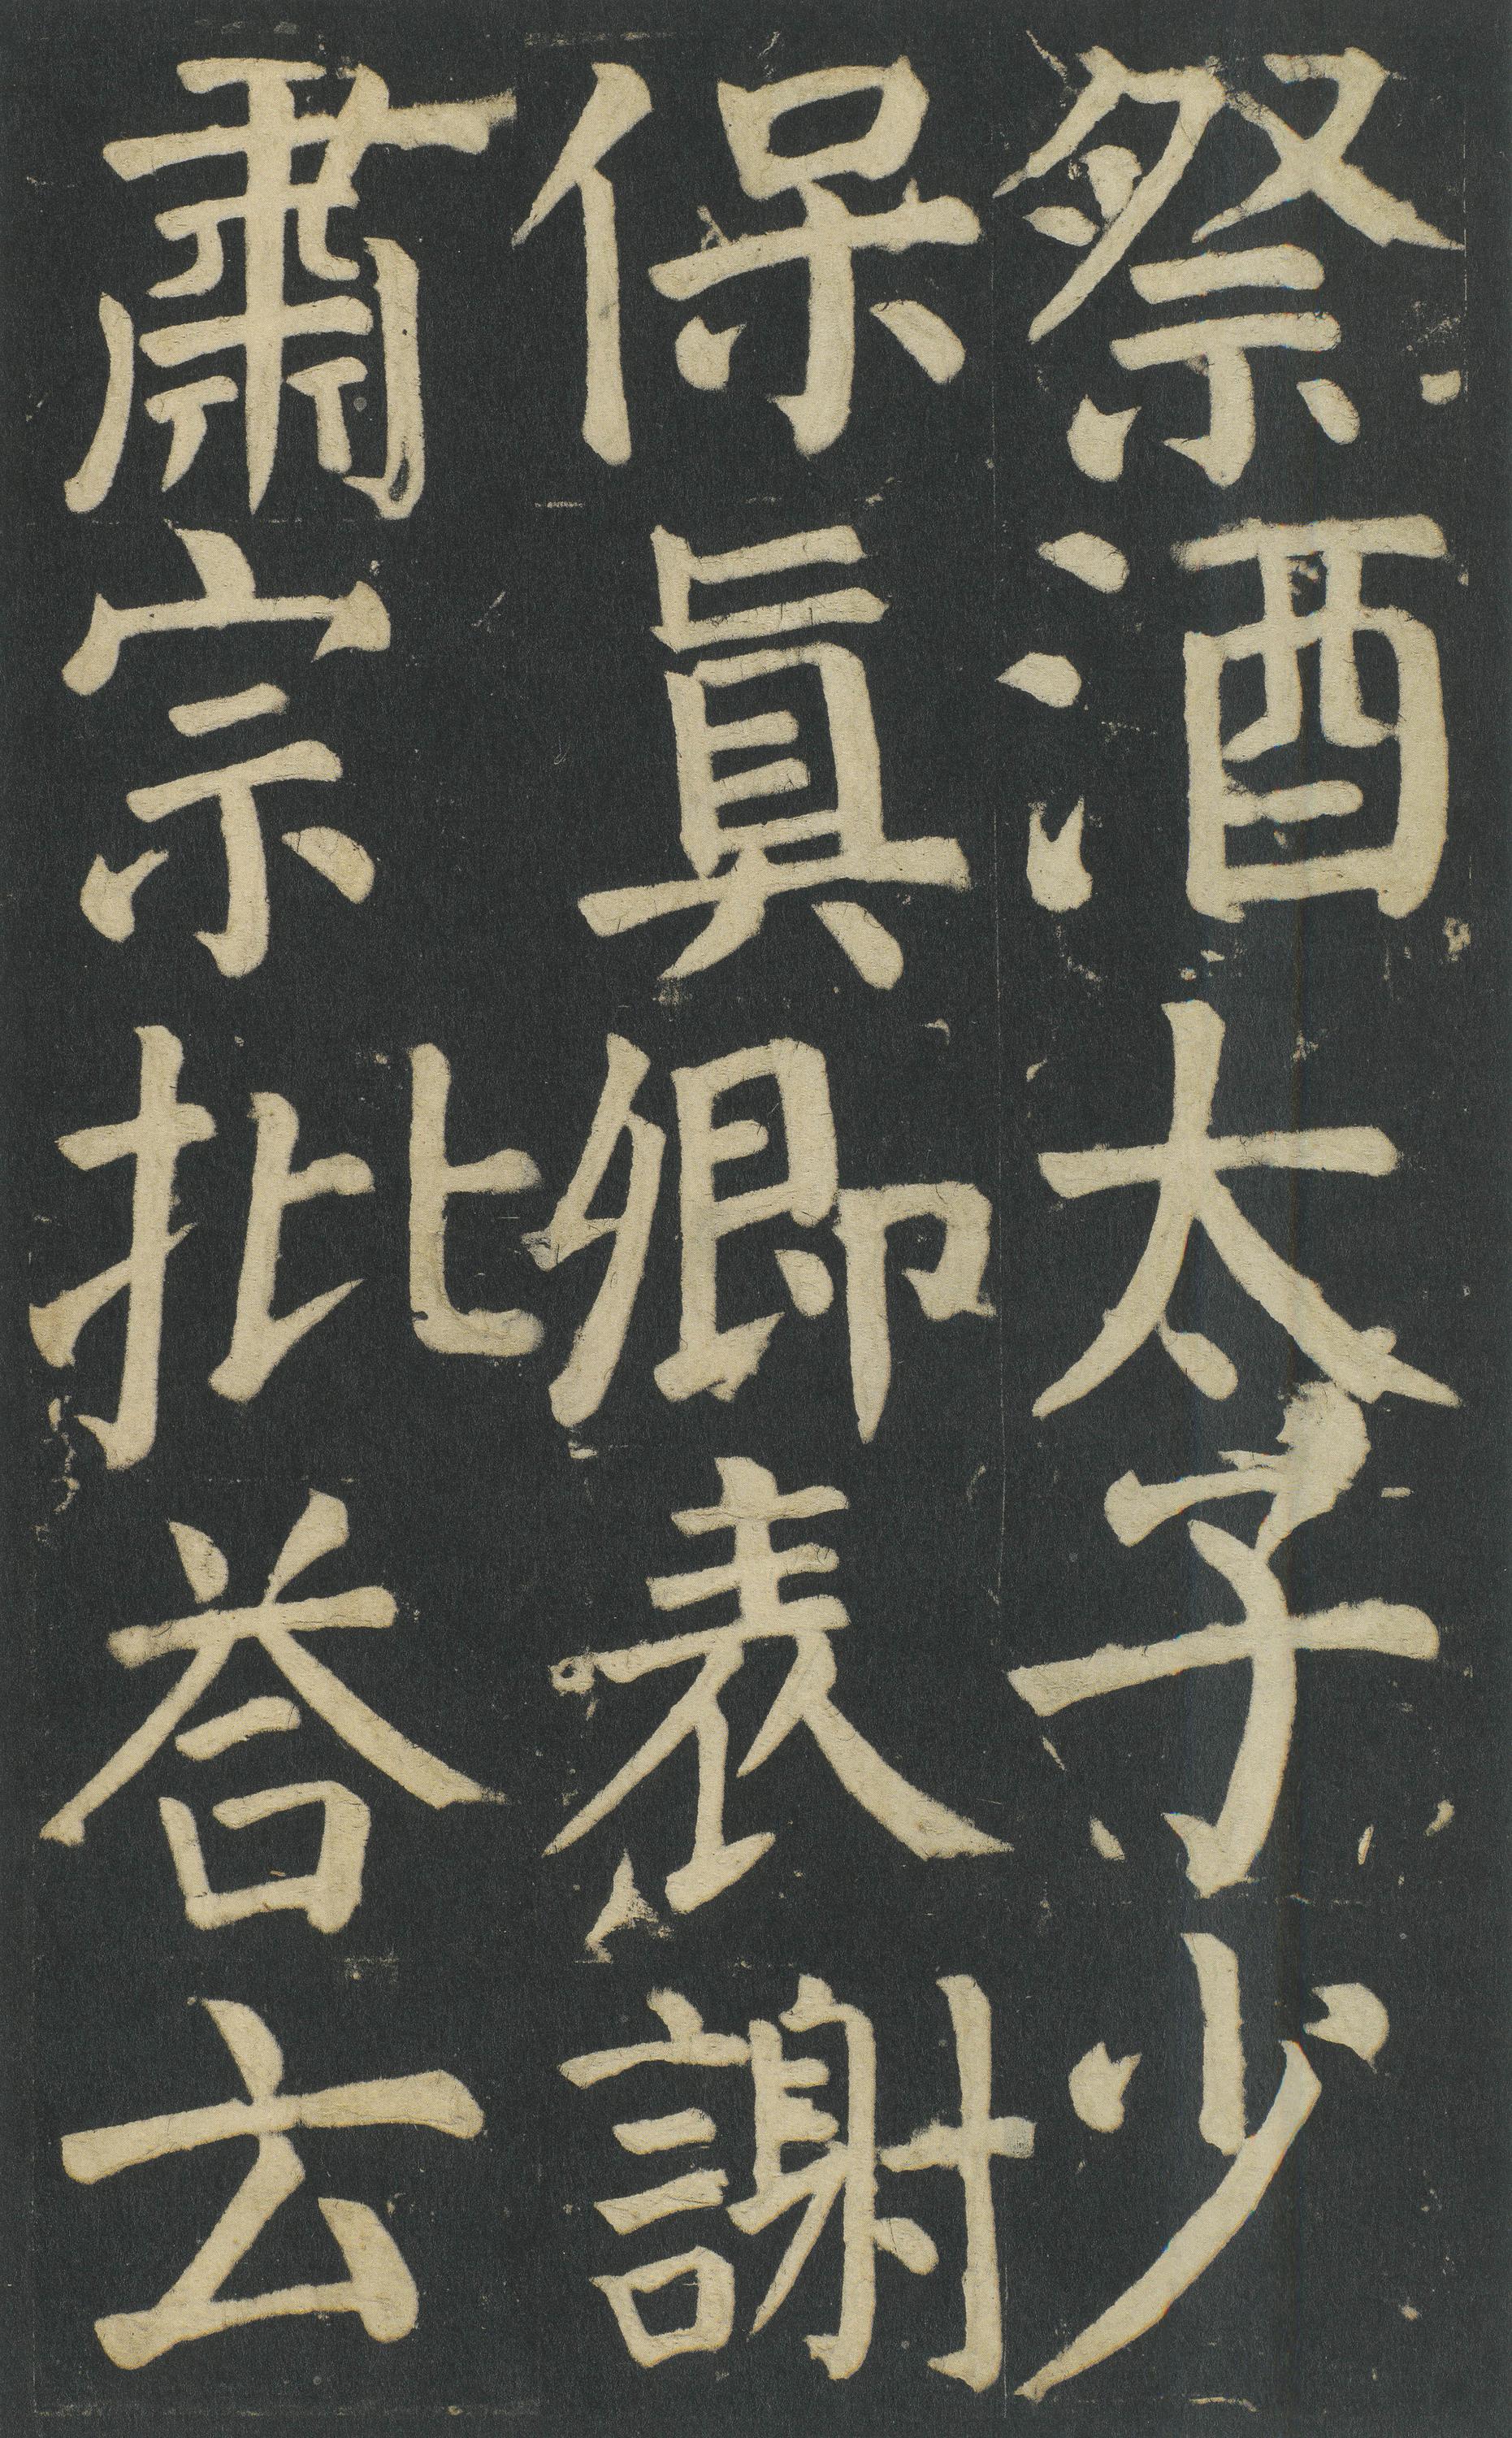 祭酒太子少
保真卿表謝
肅宗批荅云